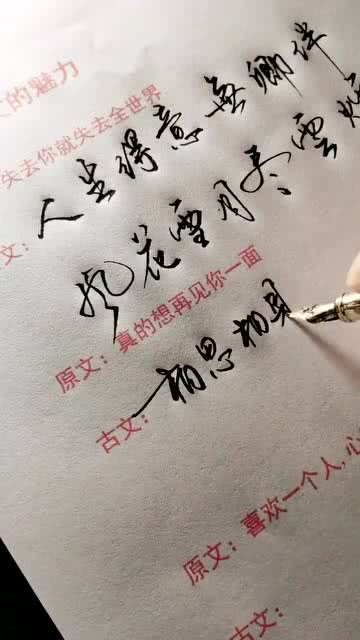 的魅力
失去你就失去全世界
文：人生得意無卿伴
风花雪月尽雲
原文：真的想再见你一面
古文：相思相見
原文：喜欢一个人，心
古文：